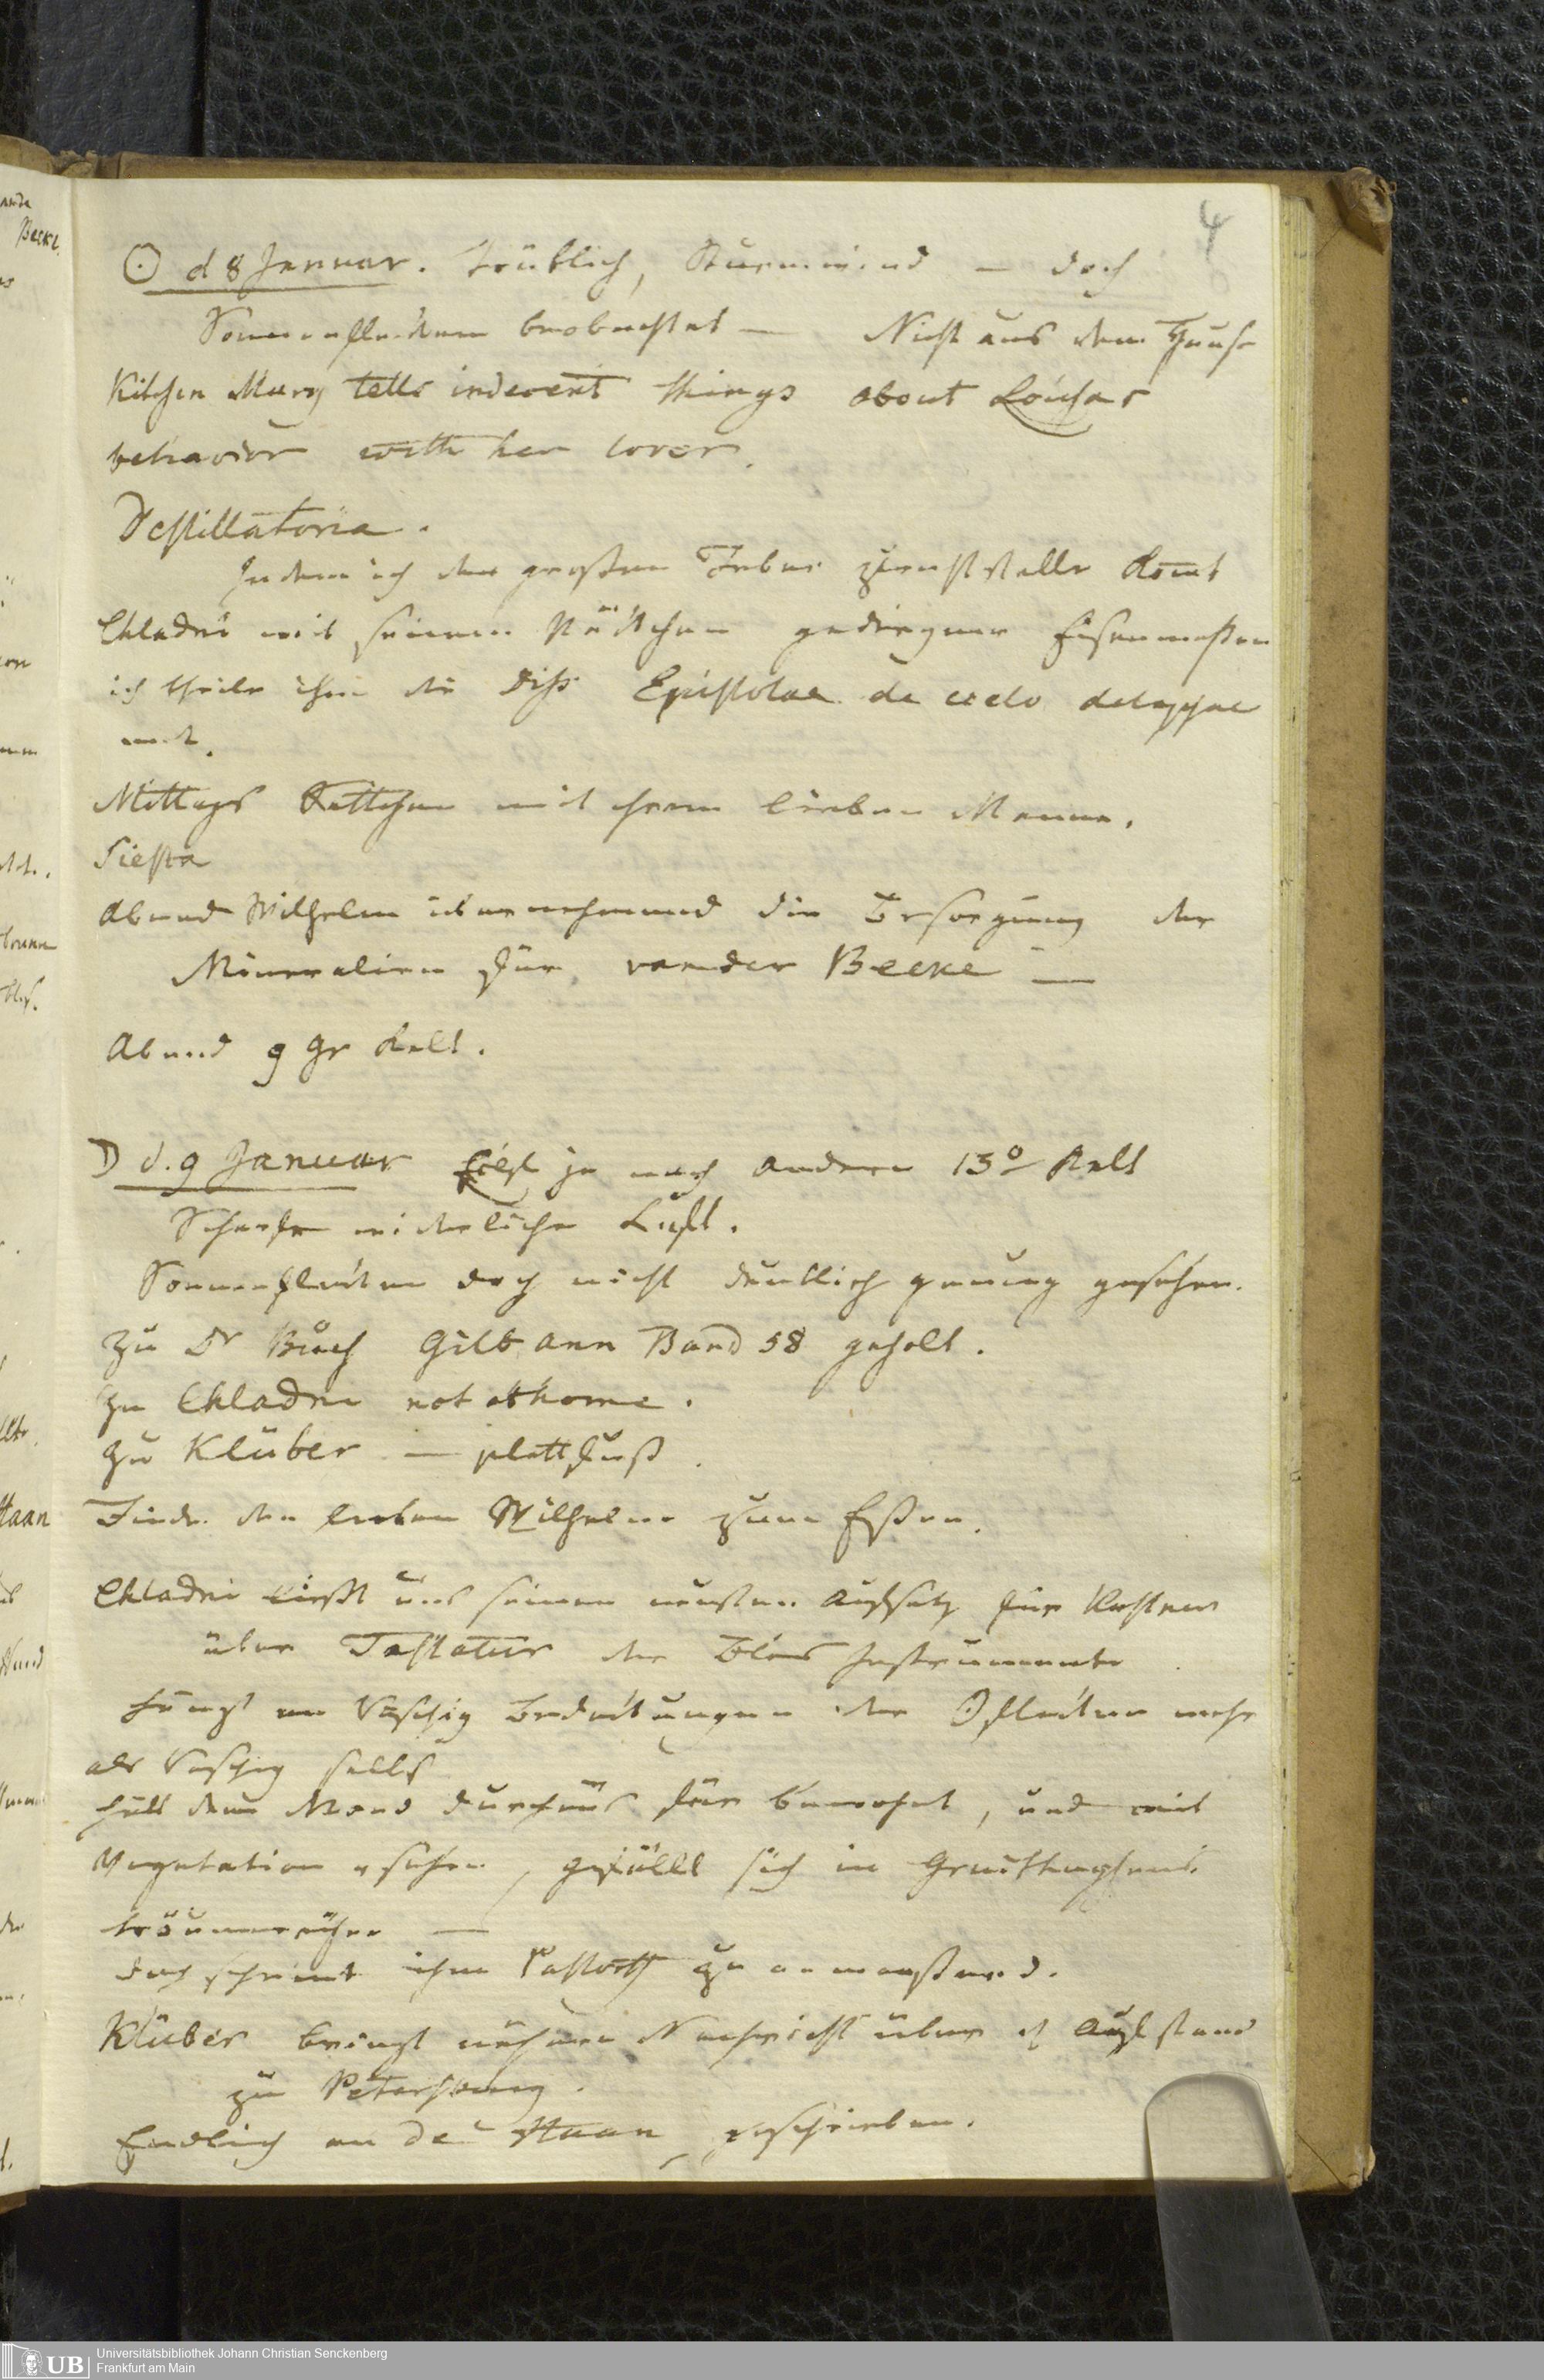 4
☉ d 8 Januar. trüblich, Sturmwind — doch
Sonnenflecken beobachtet — Nicht aus dem Hause
Kitchen Mary tells indecent things about Louisas
behavior with her lover.
Destillatoria.
Indem ich den großen Tubus zurechtstelle komt
Chladni mit seinem Kästchen gediegner Eisenmaßen
ich theile ihm die Diss Epistolae de coelo delapsae
mit.
Mittags Kettchen mit ihrem lieben Manne.
Siesta
Abend Wilhelm übernehmend die Besorgung der
Mineralien für vander Becke —
Abend 9 Gr Kalt.
☽ d. 9 Januar früh je nach andern 13° Kalt
Scharfe widerliche Luft.
Sonnenflecken doch nicht deutlich genung gesehen.
Zu Dr Buch Gilb Ann Band 58 geholt.
Zu Chladni not at home.
Zu Klüber — plattfuß.
Finde den lieben Wilhelm zum Eßen.
Chladni ließt uns seinen neusten Aufsatz für Kastner
über Tastatur der Blas Instrumente
hängt an Raschig Bedeckungen der ☉flecken mehr
als Raschig selbst
hält den Mond durchaus für bewohnt, und mit
Vegetation versehen, gefällt sich in Gruithuysens
träumereyen —
doch scheint ihm Pastorff zu anmaßend.
Klüber bringt nähere Nachricht über d Aufstand
zu Petersburg.
Endlich an de Haan geschrieben.
Becke
Haan
Universitätsbibliothek Johann Christian Senckenberg
Frankfurt am Main
UB